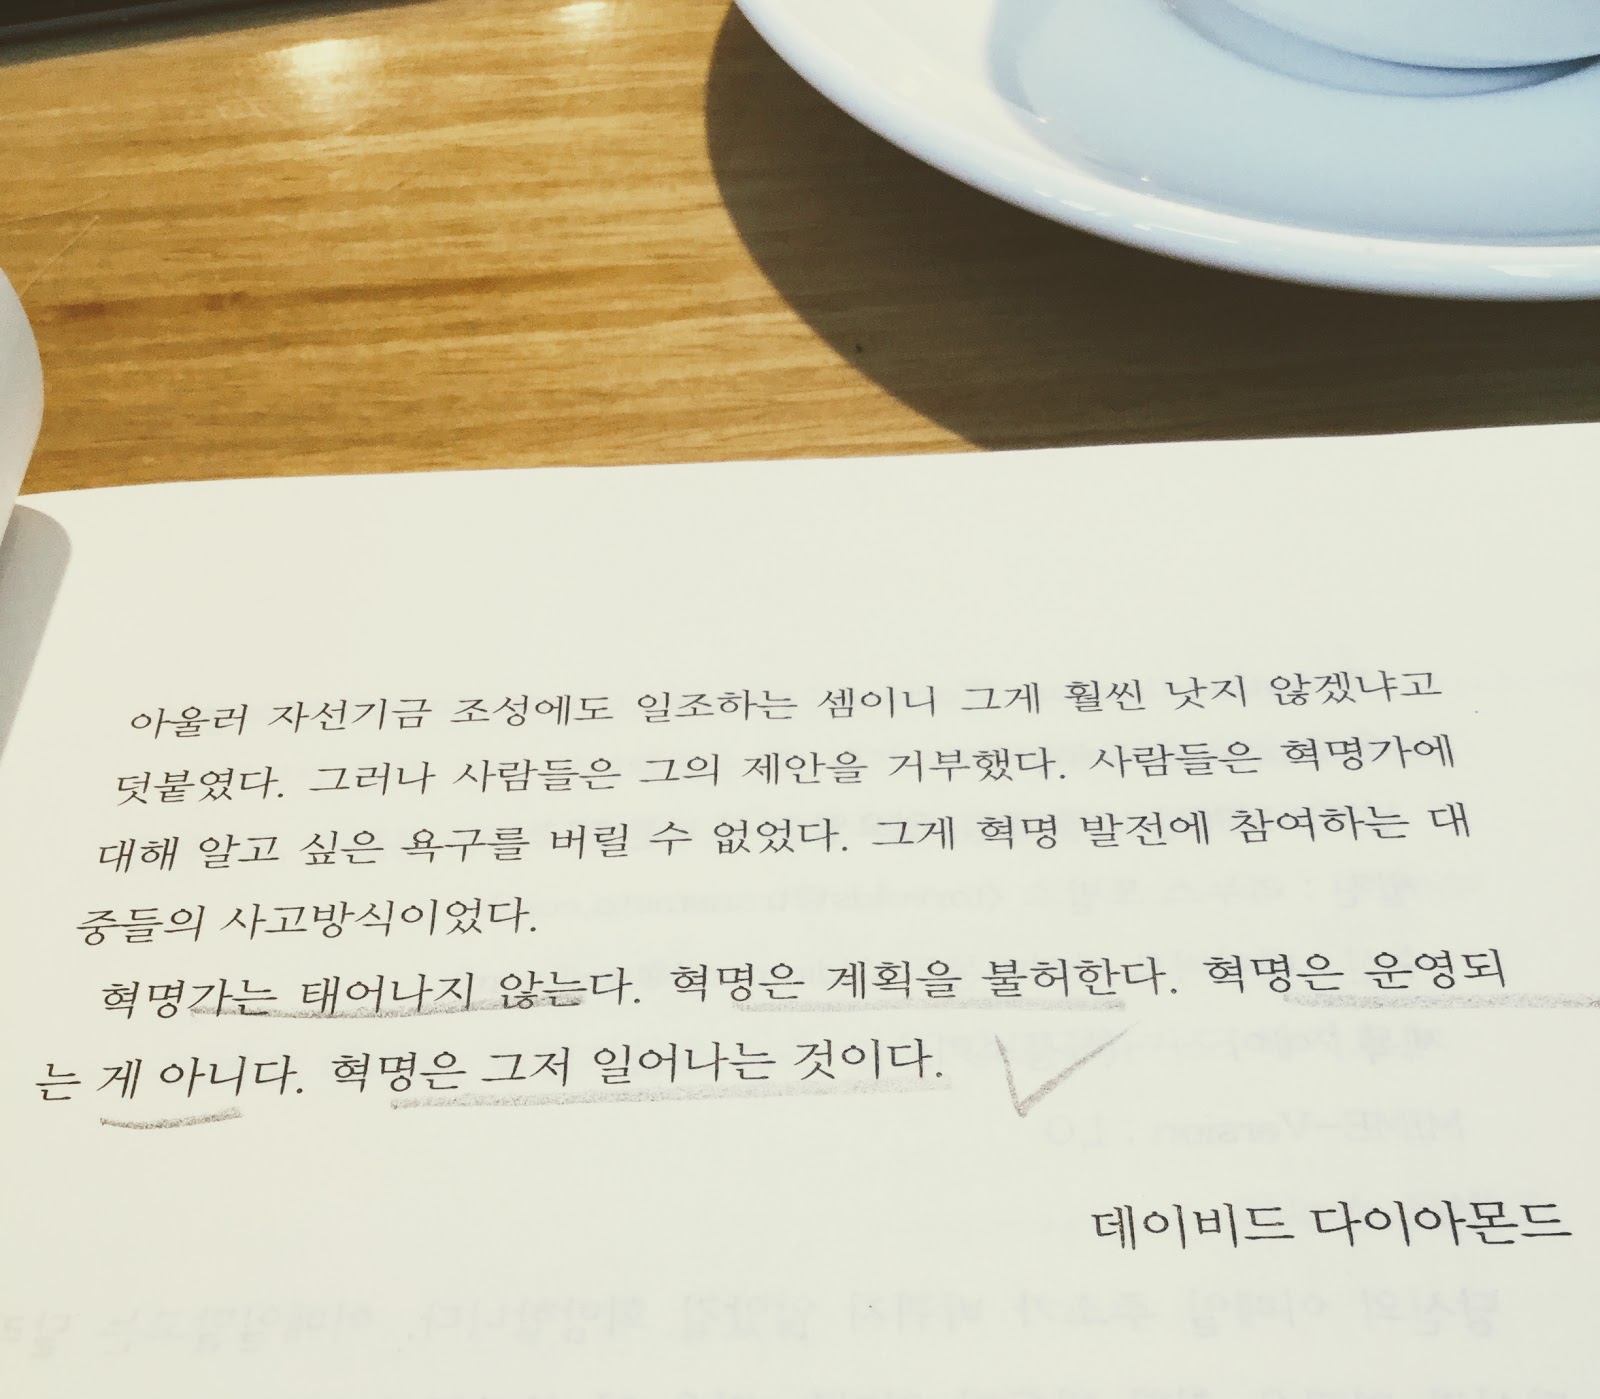 아울러 자선기금 조성에도 일조하는 셈이니 그게 훨씬 낫지 않겠냐고
덧붙였다. 그러나 사람들은 그의 제안을 거부했다. 사람들은 혁명가에
대해 알고 싶은 욕구를 버릴 수 없었다. 그게 혁명 발전에 참여하는 대
중들의 사고방식이었다.
혁명가는 태어나지 않는다. 혁명은 계획을 불허한다. 혁명은 운영되
는 게 아니다. 혁명은 그저 일어나는 것이다.
데이비드 다이아몬드